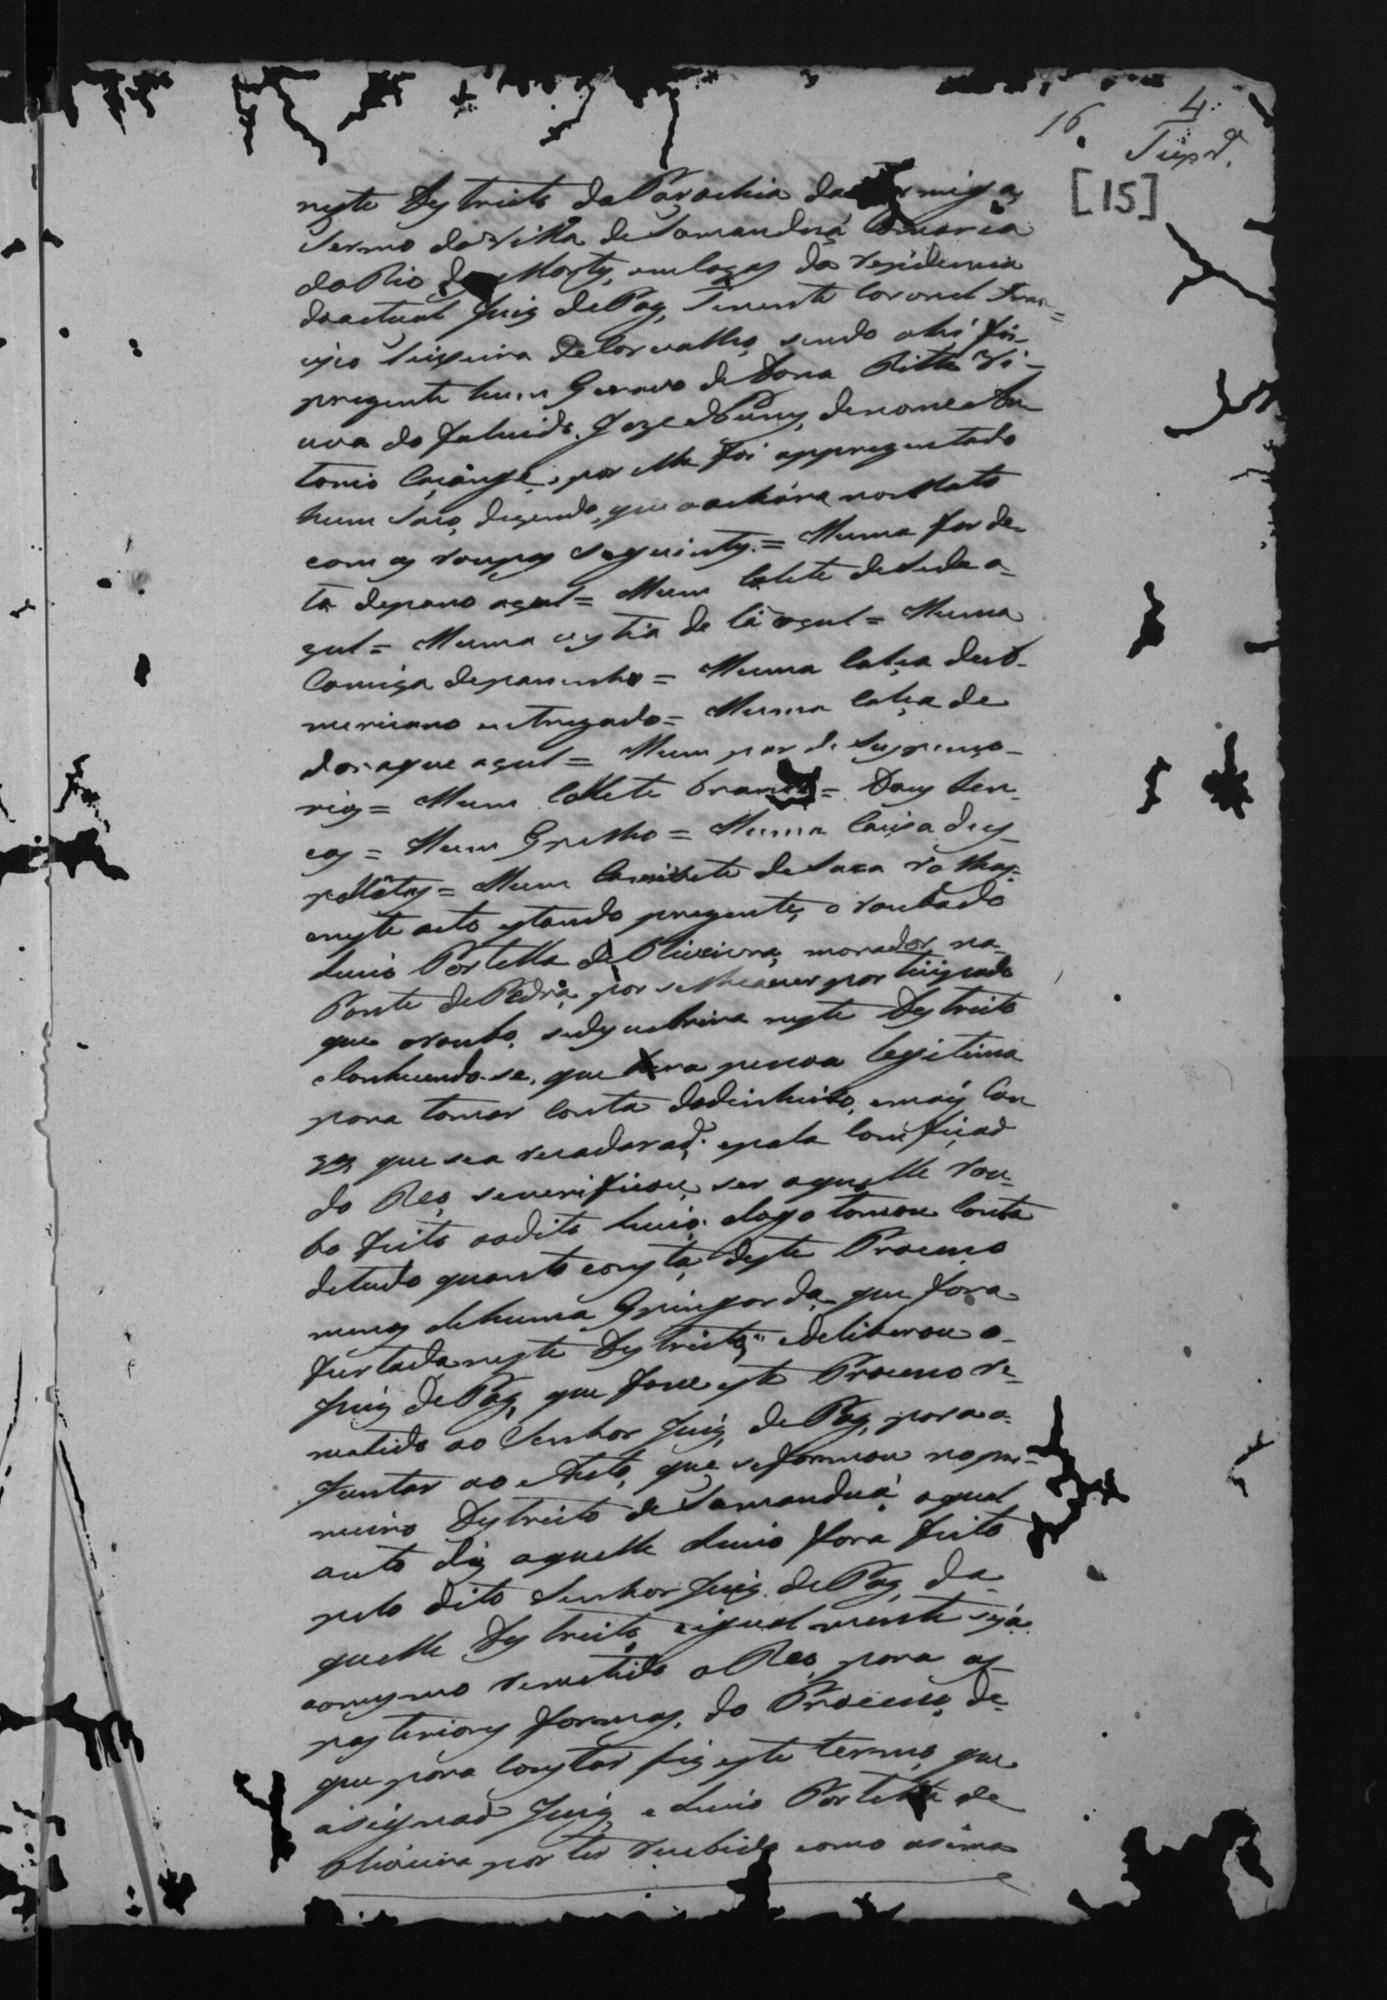 16 4
[15]
neste Destricto da Parochia da Formiga,
Termo da Villa de Tamanduá Comarca
do Rio das Mortes, em cazas da rezidencia
do actual Juiz de Paz, Tenente Coronel Fran=
cisco Teixeira de Carvalho, sendo ahi foi
prezente hum Escravo de Dona Ritta Vi-
uva do falecido Joze de Puny, de nome An
tonio Caçange, por elle foi apprezentado
hum Saco, dizendo, que o achára no Matto
com as roupas seguintes = Huma farde
ta de pano azul = Hum Colete de Seda a-
zul = Huma vestia de lã azul = Huma
Camiza de paninho = Huma Calça de A-
mericano entrezado = Huma Calça de
doraque azul = Hum par de suspenço-
rios = Hum Collete branco = Dous Len-
ços = Hum Espelho = Huma Caixa de es
polêtas = Hum Canivete de Saca rolhas,
e neste acto estando prezente, o roubado
Lucio Portella de Oliveira, morador na
Ponte de Pedra, por se lhe aver por
que o roubo se descubrira neste Destricto
e Conhecendo-se, que hera pessoa legitima
para tomar Conta do dinheiro, e mais Cou
zas que se arecadarão, e pela Comfição
do Reo, se verificou, ser aquelle rou-
bo feito ao dito Lucio, e logo tomou Conta
de tudo quanto consta deste Processo
menos de huma Espingarda, que fora
furtada neste Destricto, e deliberou o
Juiz de Paz, que fosse este Processo re-
metido ao Senhor Juiz de Paz, para a-
juntar ao Auto, que se formou no pri-
meiro Destricto de Tamanduá, o qual
auto diz aquelle Lucio fora feito
pelo dito Senhor Juiz de Paz, da-
quelle Destricto, e igualmente seja
ao mesmo remetido o Reo, para as
posteriores formas, do Processo, de
que para Constar fiz este termo, que
asignão Juiz, e Lucio Portella de
Oliveira por ter recebido como asima